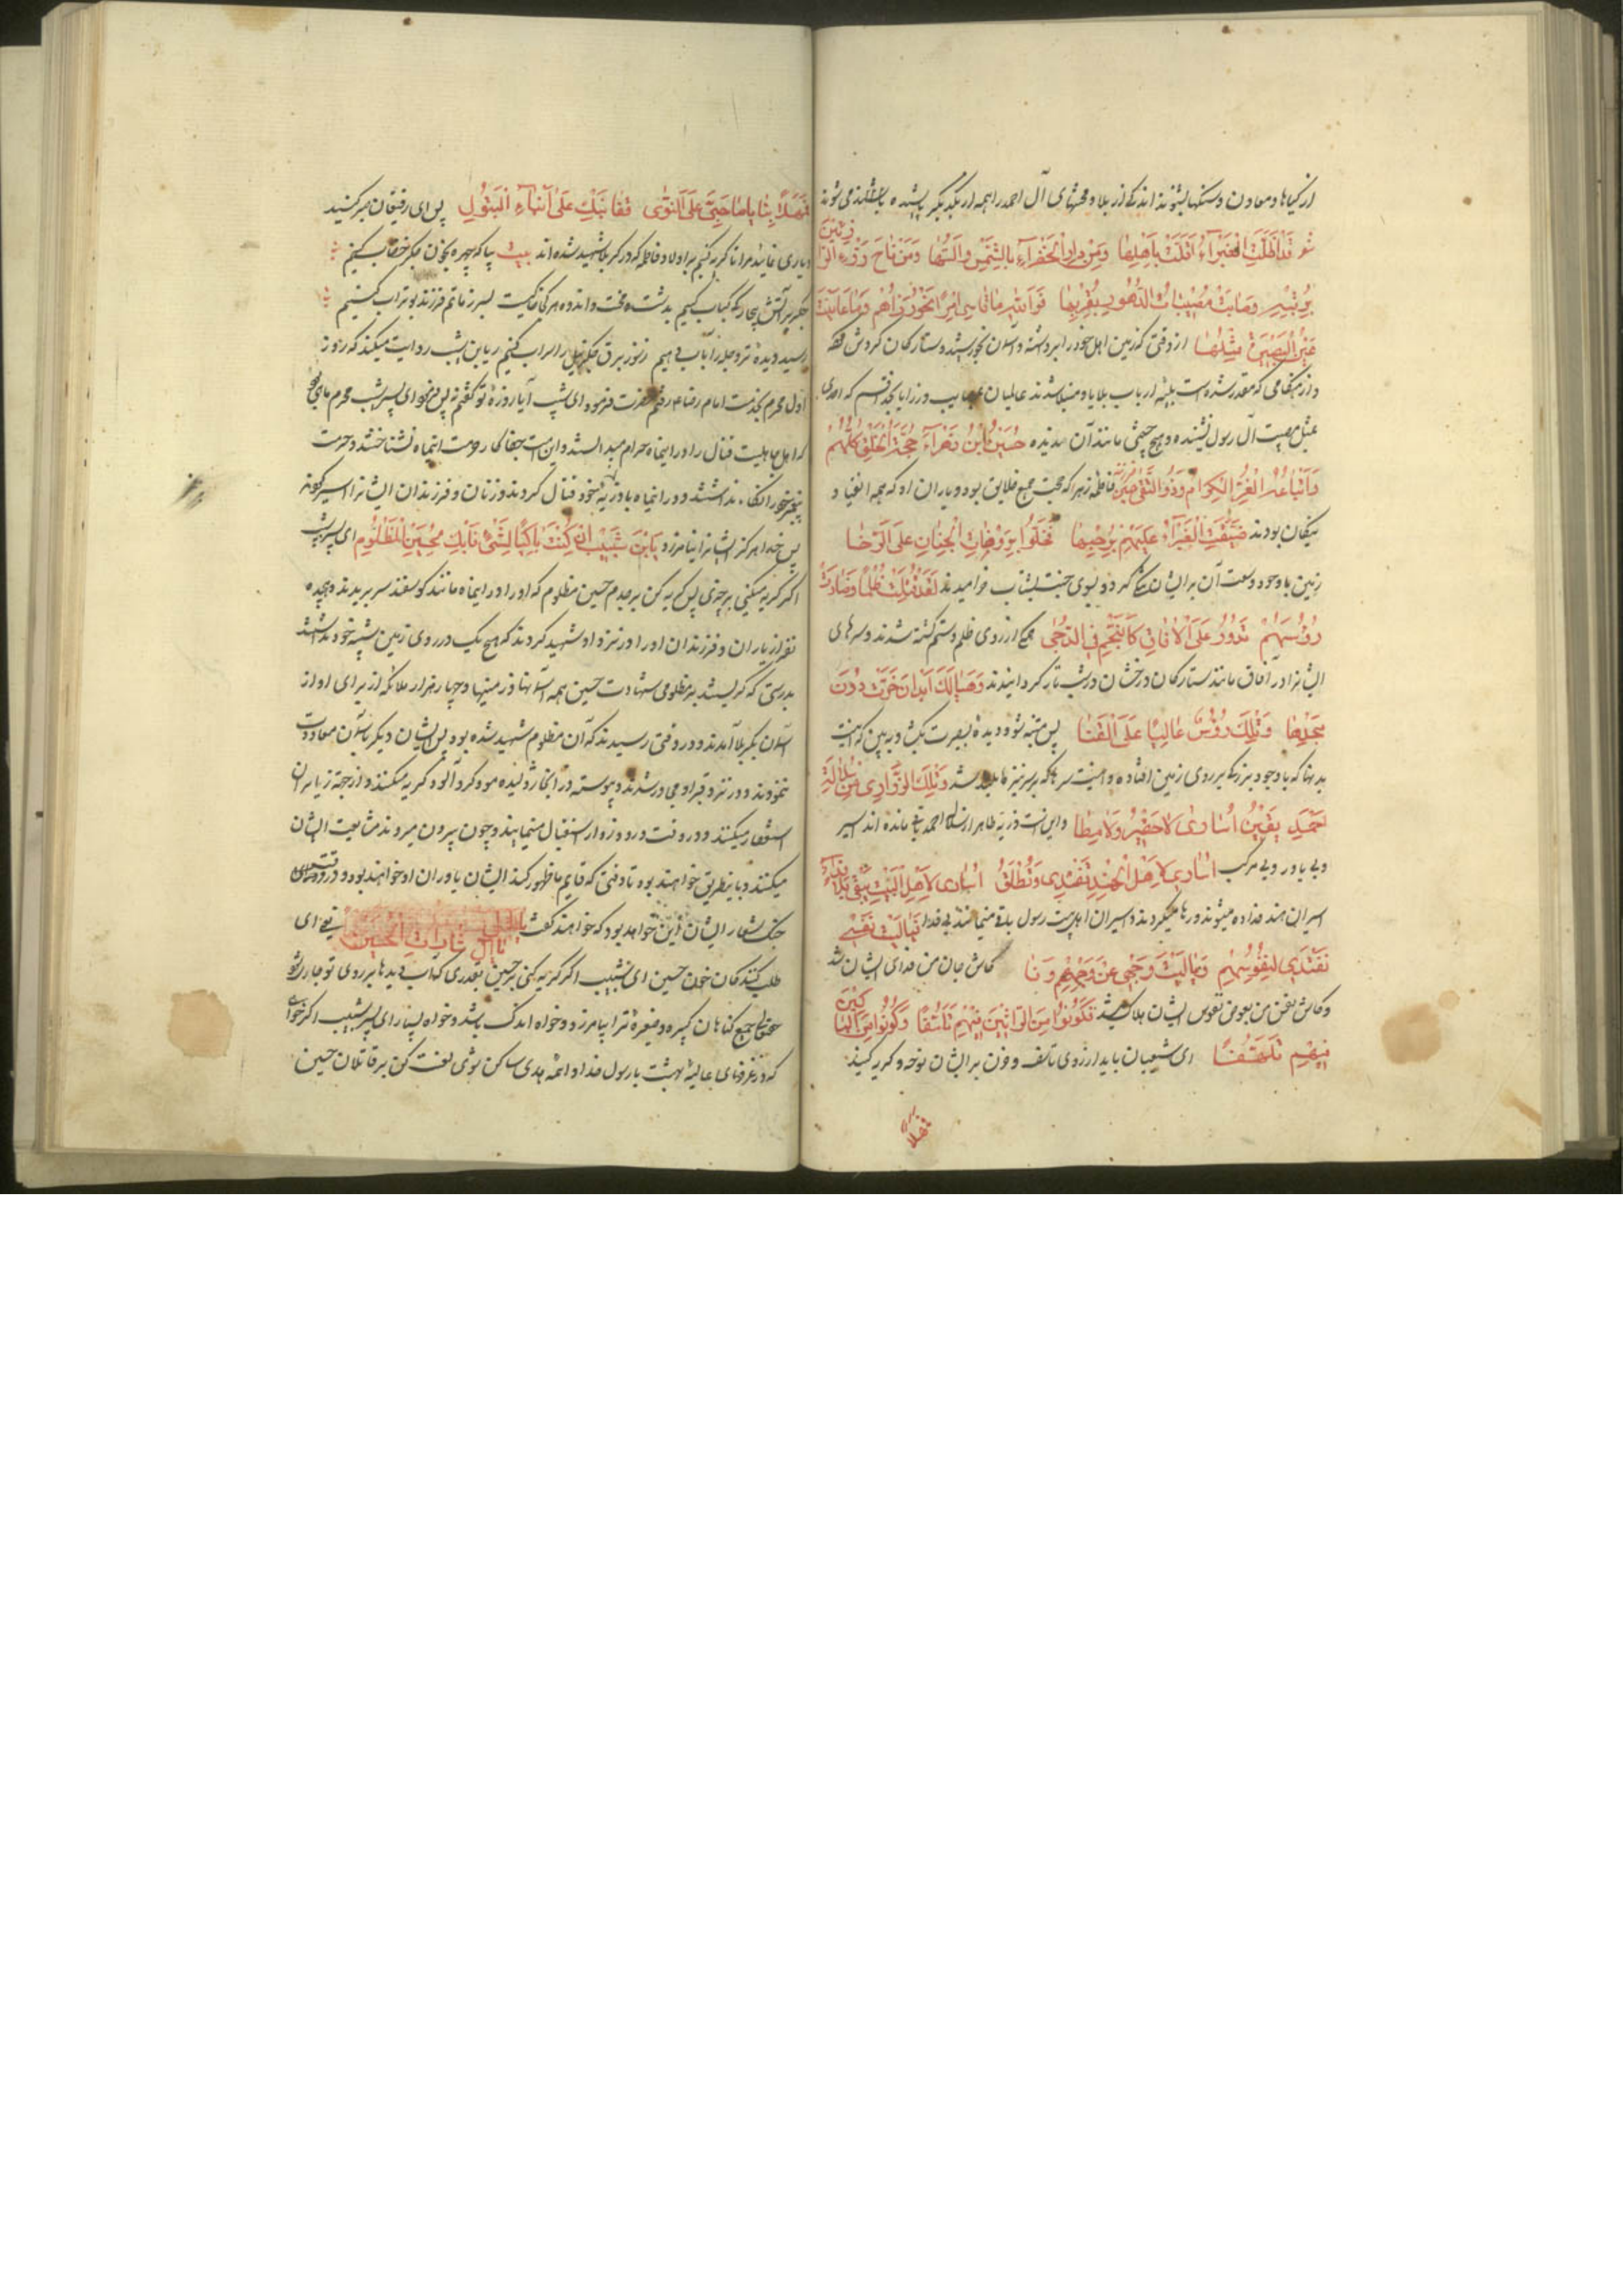 از کیاها و معادن و سنکها بشنوند اندکی از بلا و محنتهای آل احمد را همه از یکدیکر پاشیده
شعر قد اظلت الغبراء اقلت باهلها ومن دار الخضراء بالشمس والسها ومن ناح
بریته وصابت مصیبات الدهور بقربها فوالله ما قاسی امرء نحو رزاهم وما عاینت
عین البصیرة مثلها از وقتی که زمین اهل خود را برداشته و آسمان بخورشید و ستارکان کردش
و از هنکامی که مقدر شده است بلیه ارباب بلایا و مبتلا شدند عالمیان بمصایب و رزایا بخدا قسم که احدی
بمثل مصیبت آل رسول نشنیده و هیچ چشمی مانند آن ندیده حسین ابن زهراء حجة الخلق کلهم
واتباعه الغر الکرام وذو التقی حسین فاطمه زهرا که حجت جمیع خلایق بود و یاران او که همه اتقیا و
نیکان بودند ضیقت الغبراء علیهم برحبها فحلوا بروضات الجنان علی الرضا
زمین با وجود وسعت آن بر ایشان تنک کردد بسوی جنت بشتاب خرامیدند لقد قتلت ظلما وصارت
رؤسهم تدور علی الافاق کالنجم فی الدجی همکی از روی ظلم و ستم کشته شدند و سرهای
ایشانرا در آفاق مانند ستارکان درخشان در شب تار کردانیدند وها لک ابدان خوت دون
مجدها وتلک رؤس عالیا علی القنا پس متنبه شو و دیده بصیرت بکشا و ببین که اینست
بدنها که با وجود بزرکی بر روی زمین افتاده و اینست سرها که بر سر نیزها بلند شد وتلک الذراری من سلالة
احمد بقین اساری لا خفیر ولا مطا و این است ذریه طاهر از سلاله احمد باقی مانده اند اسیر
و بی یاور و بی مرکب اساری لاهل الهند تفتدی وتطلق اساری لاهل البیت تبقی بلا فداء
اسیران هند فدا داده میشوند و رها میکردند و اسیران اهل بیت رسول باقی میمانند بی فدا فیالیت نفسی
تفتدی لنفوسهم ویالیت وجهی عن وجههم ونا کاش جان من فدای ایشان شد
و کاش نفس من بعوض نفوس ایشان هلاک میشد فکونوا من الراثین فیهم تاسفا وکونوا من الباکین
فیهم تلهفا ای شیعیان باید از روی تاسف و حزن بر ایشان نوحه و کریه کنید
فهلا
فهلا بنا یا صاحبی علی النوی قفا نبک علی ابناء البتول پس ای رفیقان صبر کنید
و یاری نمائید مرا تا کریه کنیم بر اولاد فاطمه که در کربلا شهید شده اند بیت بیا که چهره بخون جکر خضاب کنیم
جکر بر آتش کباب کنیم بدشت محنت و اندوه هر کی خاکیست بسر ز ماتم فرزند بوتراب کنیم
رسید دیده تر و جله را بآب دهیم ریان بن شبیب روایت میکند که روز
اول محرم بخدمت امام رضا ع رفتم حضرت فرمود ای پسر شبیب آیا روزه تو کفتم نه پس فرمود ای پسر شبیب محرم ماهی بود
که اهل جاهلیت قتال را در اینماه حرام میدانستند و این امت جفاکار حرمت اینماه نشناختند و حرمت
پیغمبر خود را نکاه نداشتند و در اینماه با ذریه پیغمبر خود قتال کردند و زنان و فرزندان ایشانرا اسیر کردند
پس خدا هرکز ایشانرا نیامرزد یابن شبیب ان کنت باکیا لشیء فابک لحسین المظلوم ای پسر شبیب
اکر کریه میکنی بر چیزی پس کریه کن بر جدم حسین مظلوم که او را در اینماه مانند کوسفند سر بریدند و هیجده
نفر از یاران و فرزندان او را در نزد او شهید کردند که هیچ یک در روی زمین شبیه خود نداشتند
بدرستی که کریستند بر مظلومی شهادت حسین همه آسمانها و زمینها و چهار هزار ملائکه از برای او از
آسمان بکربلا آمدند و در وقتی رسیدند که آن مظلوم شهید شده بود پس ایشان دیکر بآسمان معاودت
ننمودند و در نزد قبر او می باشند و پیوسته در آنجا ژولیده مو و کرد آلود کریه میکنند و از جهة زیارت
استغفار میکنند و در وقت ورود زوار استقبال مینمایند و چون بیرون میروند مشایعت ایشان
میکنند و باینطریق خواهند بود تا وقتی که قایم ما ظهور کند ایشان یاوران او خواهند بود و در وقت
جنک شعار ایشان این خواهد بود که خواهند کفت یا آل ثارات الحسین یعنی ای
طلب کنندکان خون حسین ای پسر شبیب اکر کریه کنی بر حسین بقدری که آب دیدها بر روی تو جاری شود
حقتعالی جمیع کناهان کبیره و صغیره ترا بیامرزد و خواه اندک باشد و خواه بسیار ای پسر شبیب اکر خواهی
که در غرفهای عالیه بهشت با رسول خدا و ائمه هدی ساکن شوی لعنت کن بر قاتلان حسین